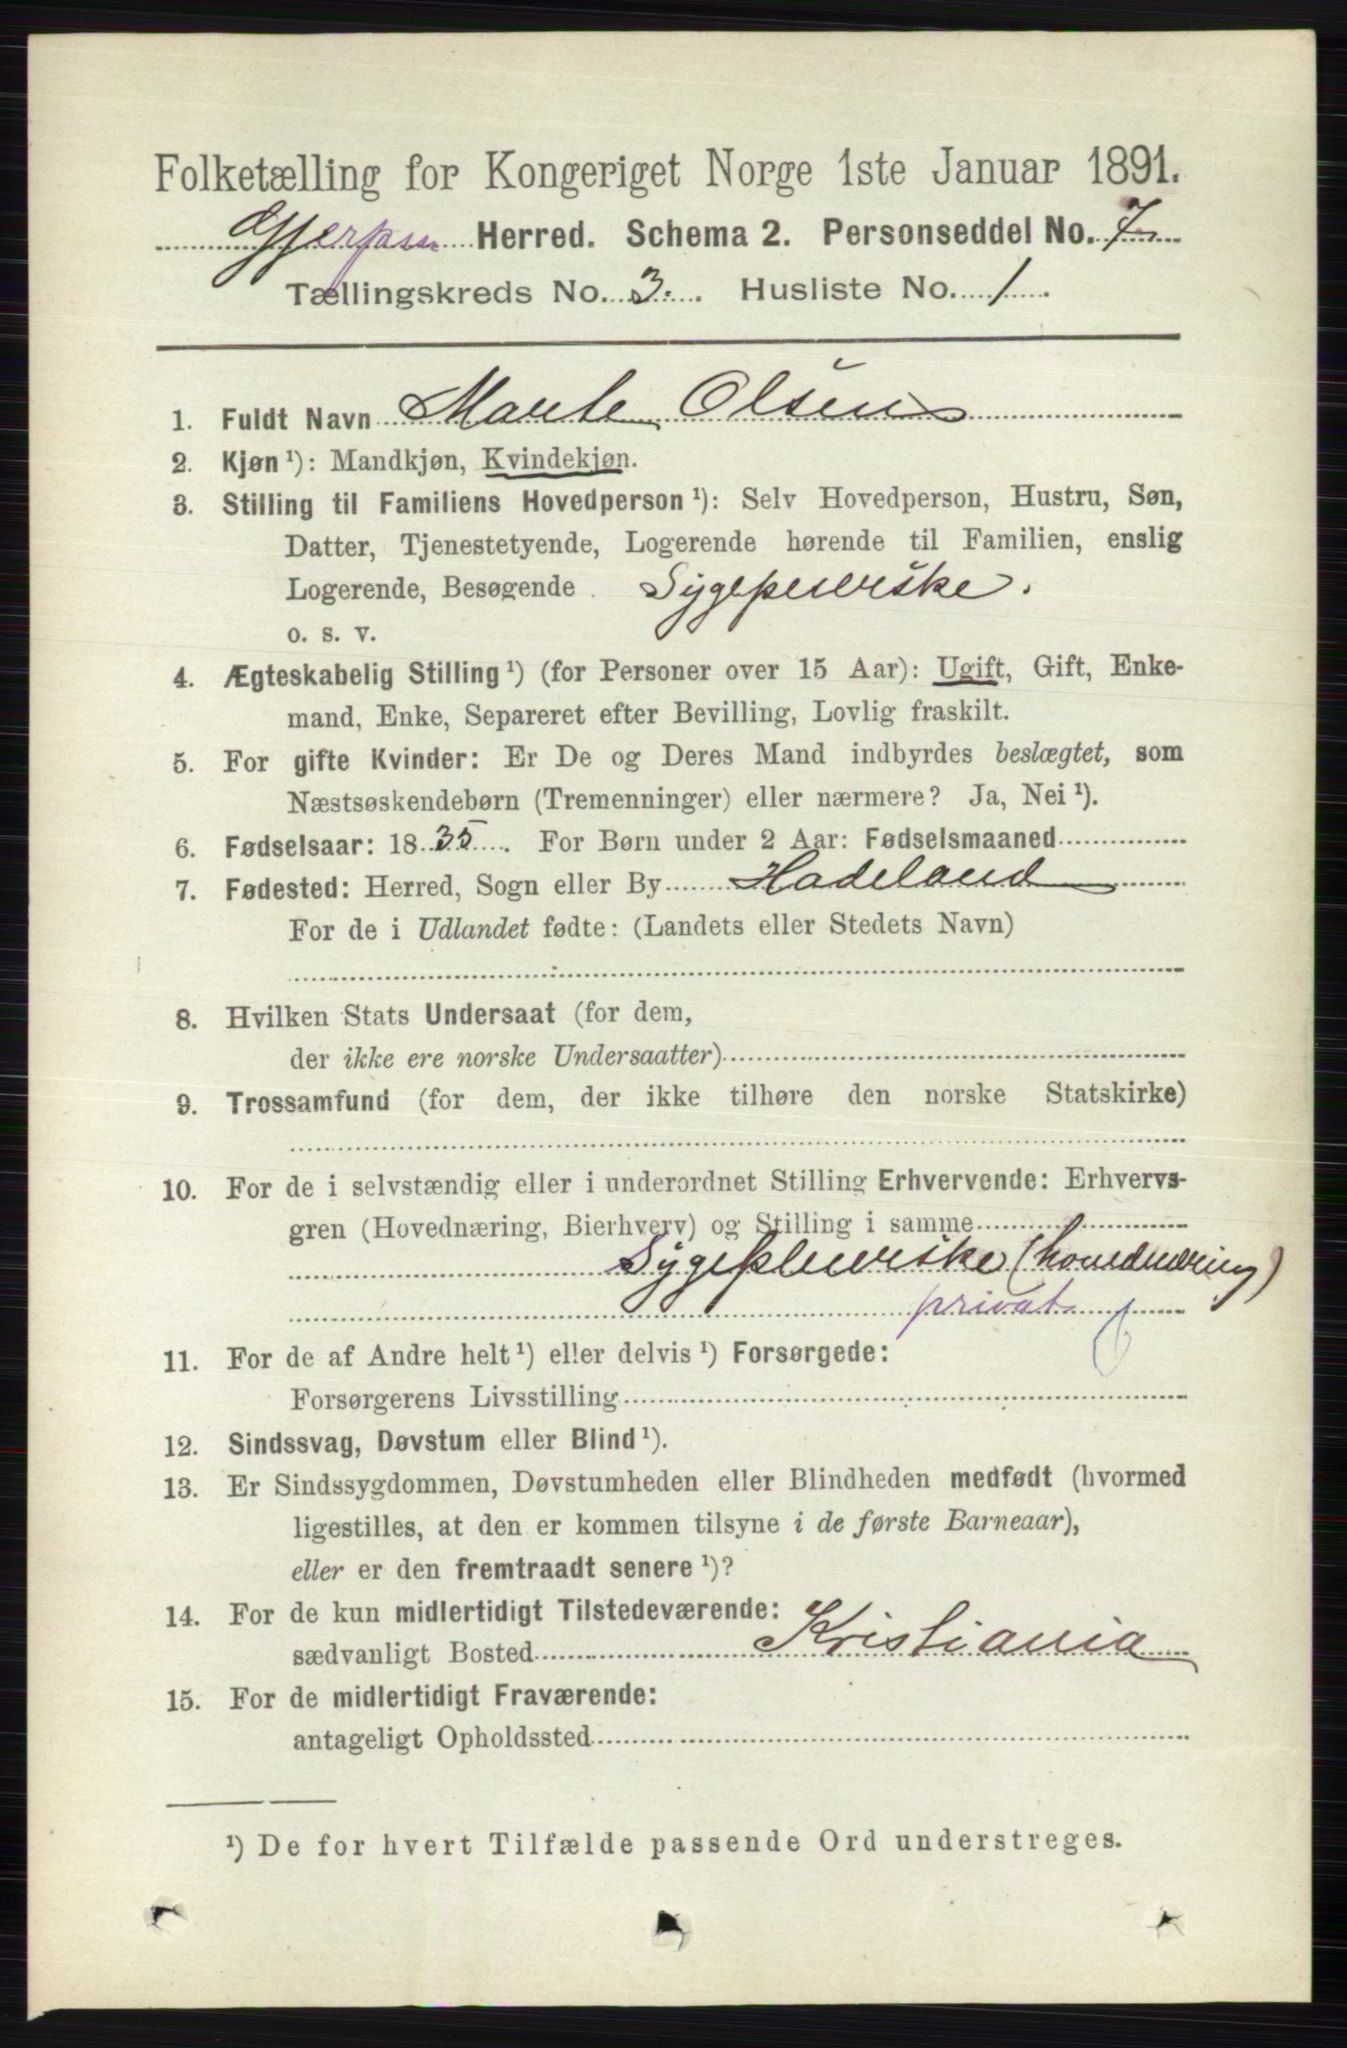 Folketælling for Kongeriget Norge 1ste Januar 1891.
Gjerpen Herred. Schema 2. Personseddel No. 7
Tællingskreds No. 3. Husliste No. 1.
1. Fuldt Navn Marte Olsen
2. Kjøn ¹): Mandkjøn, Kvindekjøn.
3. Stilling til Familiens Hovedperson ¹): Selv Hovedperson, Hustru, Søn,
Datter, Tjenestetyende, Logerende hørende til Familien, enslig
Logerende, Besøgende Sygepleierske.
o. s. v.
4. Ægteskabelig Stilling ¹) (for Personer over 15 Aar): Ugift, Gift, Enke-
mand, Enke, Separeret efter Bevilling, Lovlig fraskilt.
5. For gifte Kvinder: Er De og Deres Mand indbyrdes beslægtet, som
Næstsøskendebørn (Tremenninger) eller nærmere? Ja, Nei ¹).
6. Fødselsaar: 1835. For Børn under 2 Aar: Fødselsmaaned
7. Fødested: Herred, Sogn eller By Hadeland
For de i Udlandet fødte: (Landets eller Stedets Navn)
8. Hvilken Stats Undersaat (for dem,
der ikke ere norske Undersaatter)
9. Trossamfund (for dem, der ikke tilhøre den norske Statskirke)
10. For de i selvstændig eller i underordnet Stilling Erhvervende: Erhvervs-
gren (Hovednæring, Bierhverv) og Stilling i samme
Sygepleierske (hovednæring)
privat
11. For de af Andre helt ¹) eller delvis ¹) Forsørgede:
Forsørgerens Livsstilling
12. Sindssvag, Døvstum eller Blind ¹).
13. Er Sindssygdommen, Døvstumheden eller Blindheden medfødt (hvormed
ligestilles, at den er kommen tilsyne i de første Barneaar),
eller er den fremtraadt senere ¹)?
14. For de kun midlertidigt Tilstedeværende:
sædvanligt Bosted Kristiania
15. For de midlertidigt Fraværende:
antageligt Opholdssted
¹) De for hvert Tilfælde passende Ord understreges.